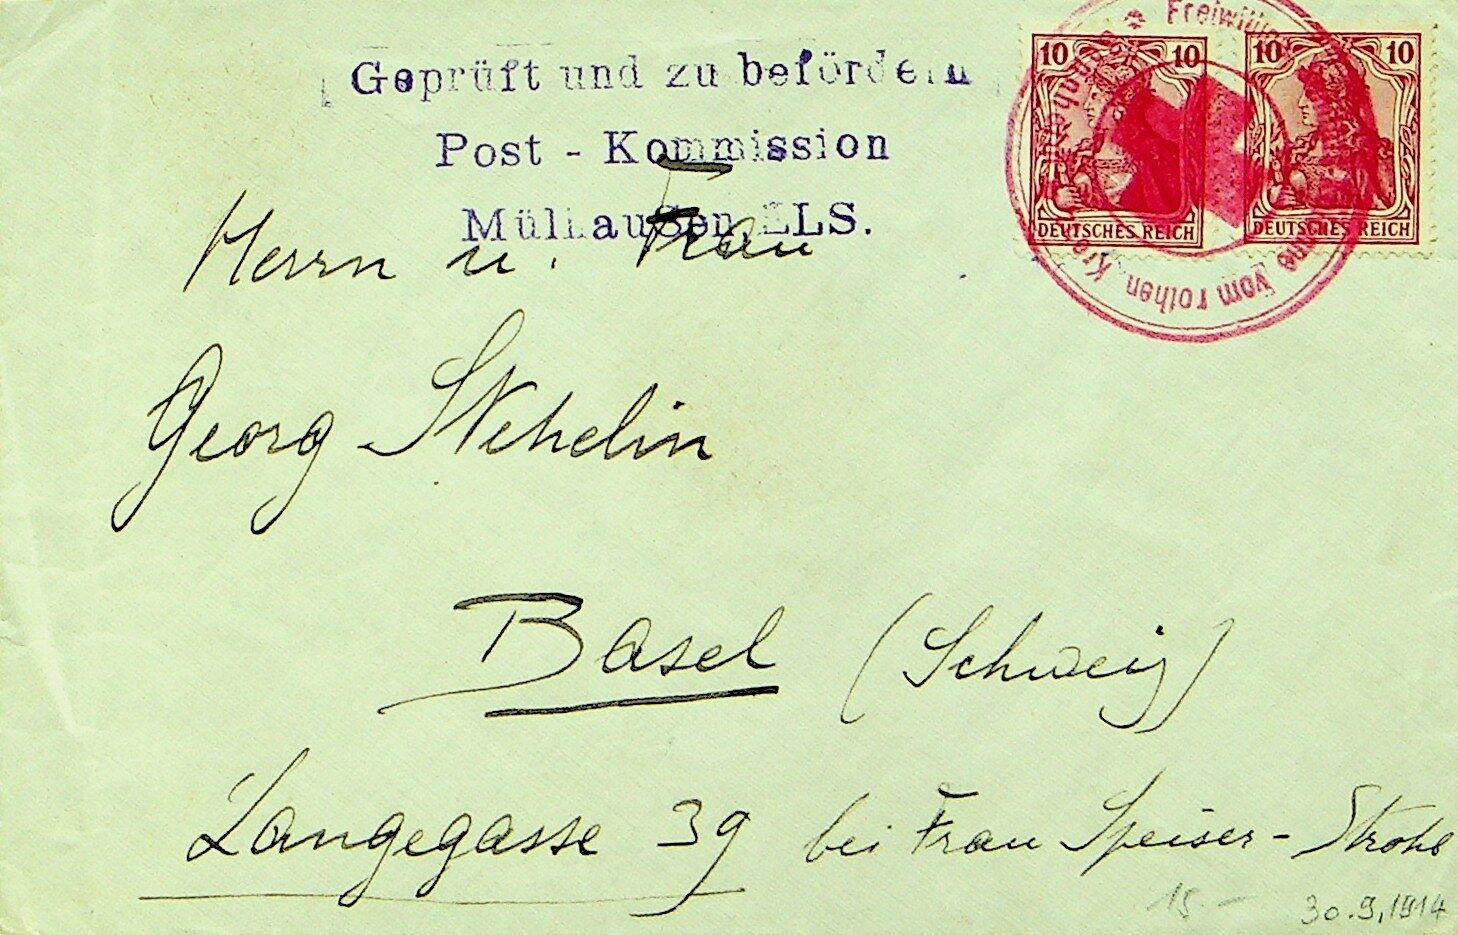 Geprüft und zu befördern
Post - Kommission
Mülhausen, ELS.
10 10
DEUTSCHES REICH
10 10
DEUTSCHES REICH
* Freiwillige
vom rothen Kre
Herrn u. Frau
Georg Stehelin
Basel (Schweiz)
Langegasse 39 bei Frau Speiser-Strohl
15.-
30.9.1914